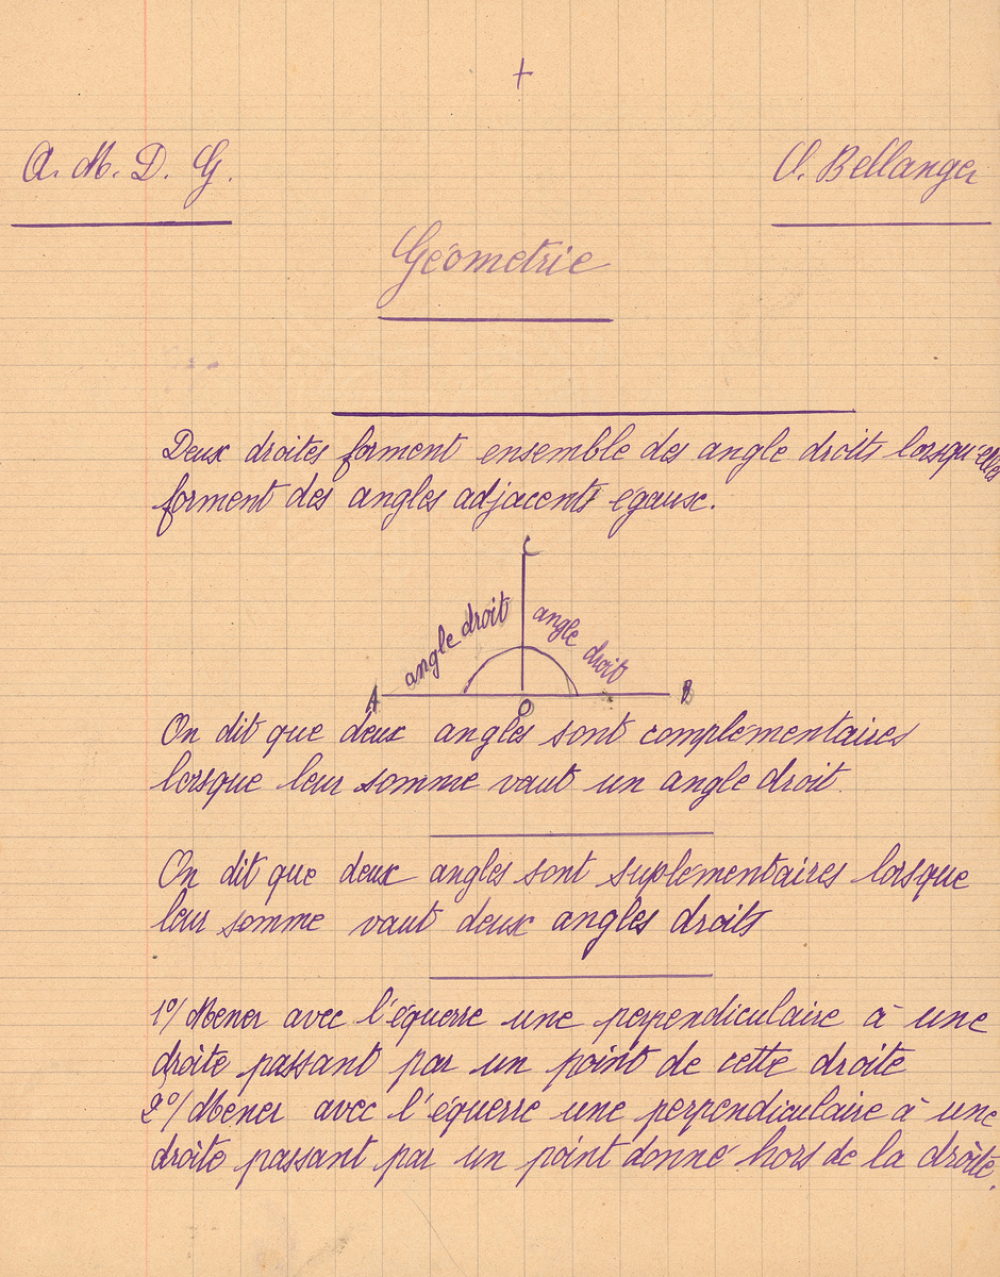 +
A. M. D. G.
O. Bellanger
Géométrie
Deux droites forment ensemble des angle droits lorsqu'elles
forment des angles adjacents égaux.
C
angle droit
angle droit
A
O
B
On dit que deux angles sont complémentaires
lorsque leur somme vaut un angle droit.
On dit que deux angles sont suplémentaires lorsque
leur somme vaut deux angles droits
1º/ Mener avec l'équerre une perpendiculaire à une
droite passant par un point de cette droite
2º/ Mener avec l'équerre une perpendiculaire à une
droite passant par un point donné hors de la droite.